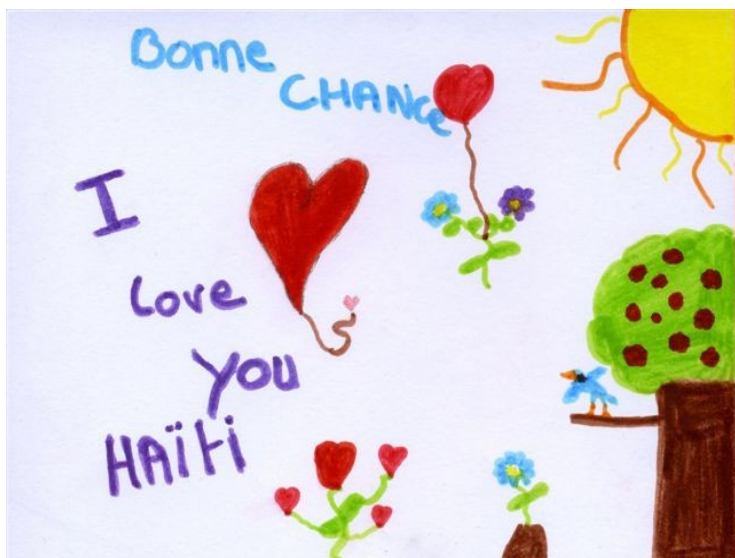 Bonne
CHANCe
I
Love
YOU
HAïti